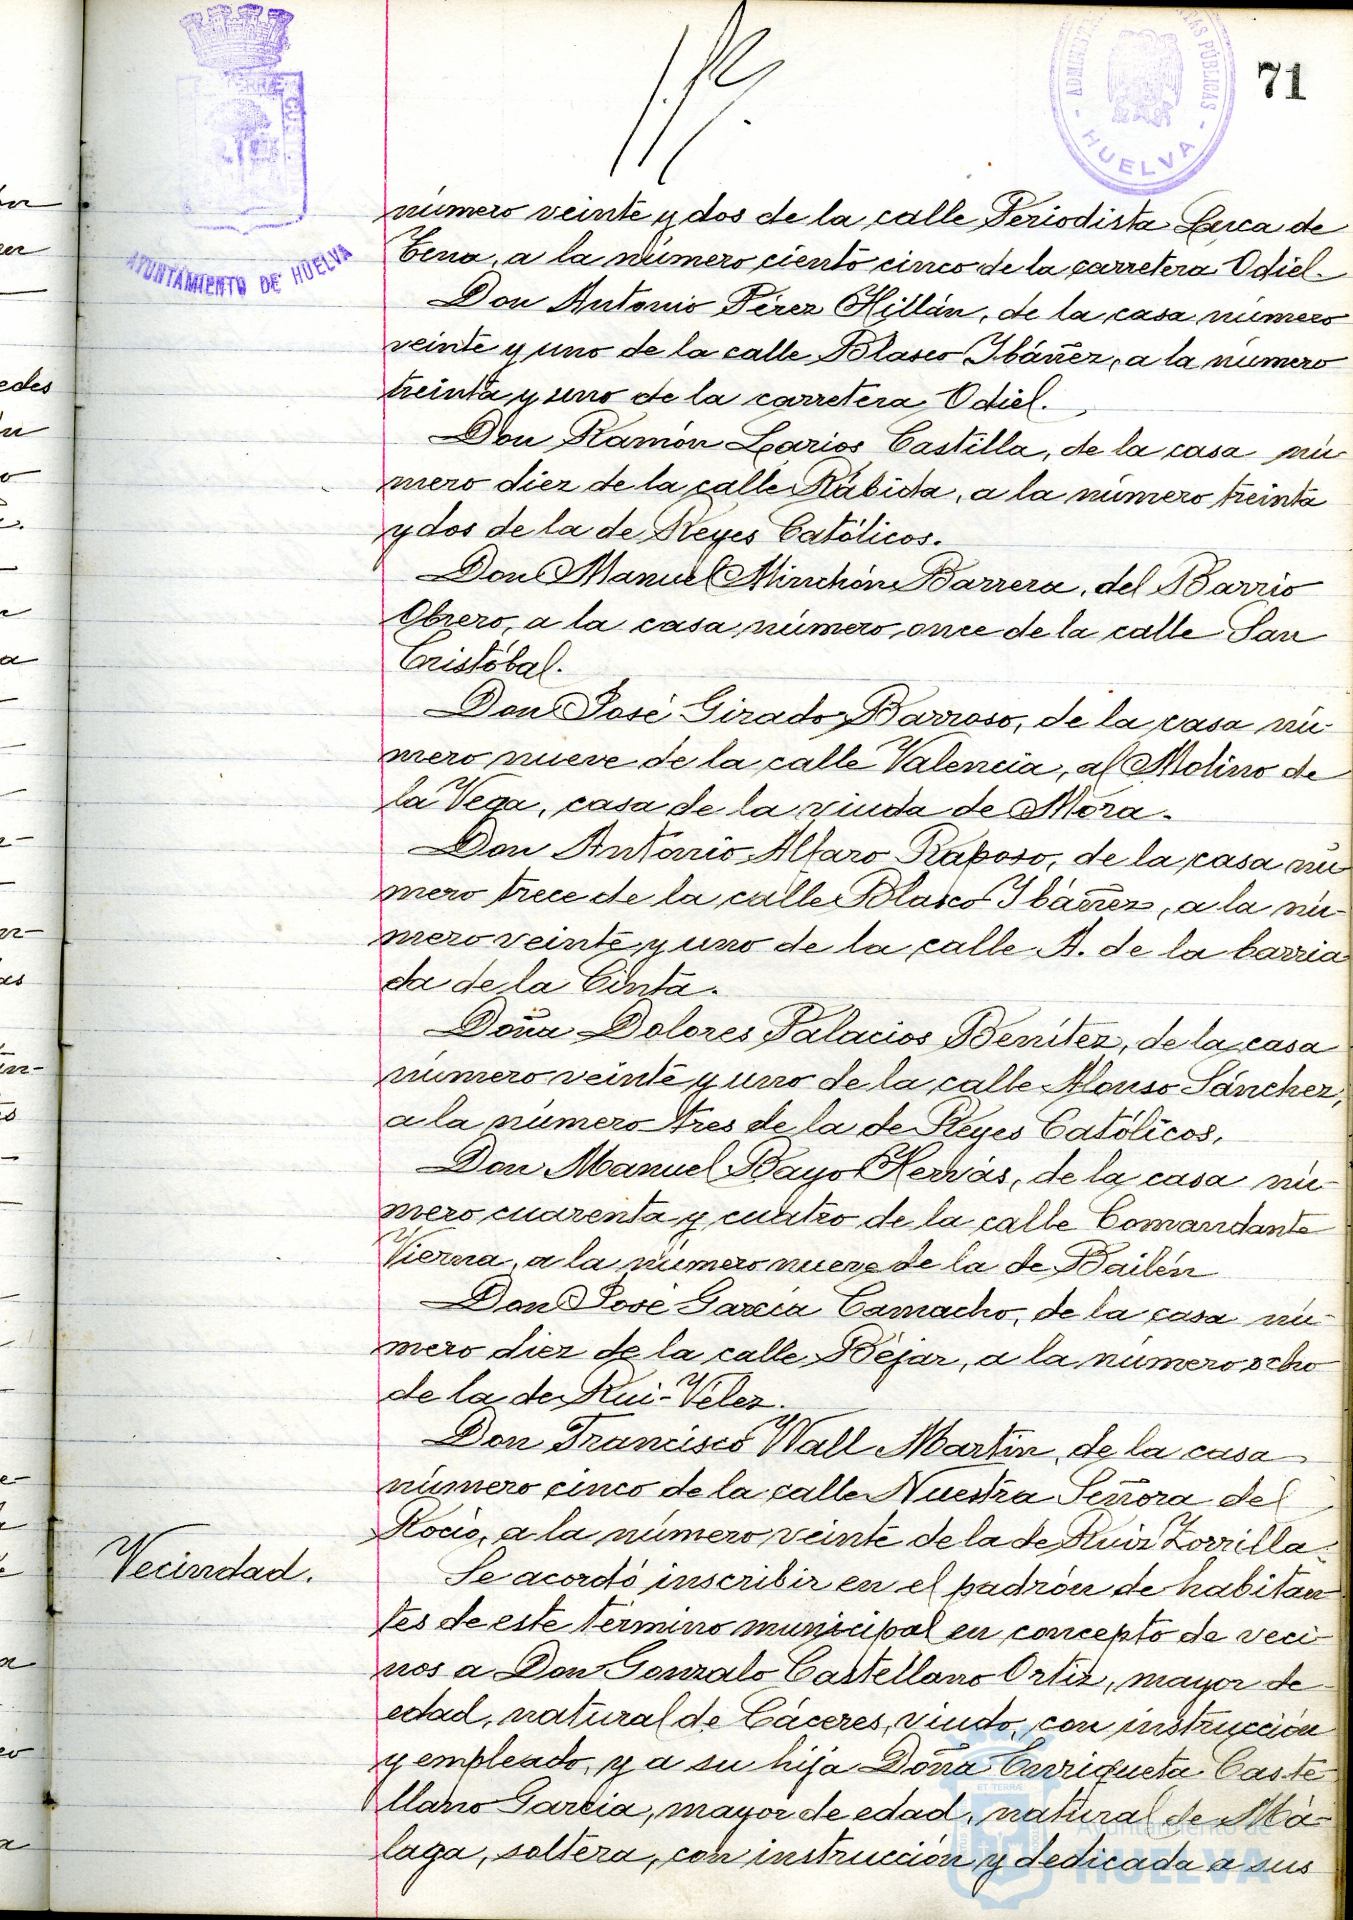 71
ADMINISTRA
TAS PÚBLICAS
- HUELVA -
AYUNTAMIENTO DE HUELVA
número veinte y dos de la calle Periodista Luca de
Tena, a la número ciento cinco de la carretera Odiel.
Don Antonio Pérez Hillán, de la casa número
veinte y uno de la calle Blasco Ibáñez, a la número
treinta y uno de la carretera Odiel.
Don Ramón Larios Castilla, de la casa nú-
mero diez de la calle Rábida, a la número treinta
y dos de la de Reyes Católicos.
Don Manuel Minchón Barrera, del Barrio
Obrero, a la casa número once de la calle San
Cristóbal.
Don José Girado Barroso, de la casa nú-
mero nueve de la calle Valencia, al Molino de
la Vega, casa de la viuda de Mora.
Don Antonio Alfaro Raposo, de la casa nú-
mero trece de la calle Blasco Ibáñez, a la nú-
mero veinte y uno de la calle A. de la barria
da de la Cinta.
Doña Dolores Palacios Benítez, de la casa
número veinte y uno de la calle Alonso Sánchez,
a la número tres de la de Reyes Católicos.
Don Manuel Bayo Hervás, de la casa nú-
mero cuarenta y cuatro de la calle Comandante
Vierna, a la número nueve de la de Bailén
Don José García Camacho, de la casa nú-
mero diez de la calle Béjar, a la número ocho
de la de Rui-Vélez.
Don Francisco Wall Martín, de la casa
número cinco de la calle Nuestra Señora del
Rocío, a la número veinte de la de Ruiz Zorrilla.
Vecindad.
Se acordó inscribir en el padrón de habitan-
tes de este término municipal en concepto de veci-
nos a Don Gonzalo Castellano Ortiz, mayor de
edad, natural de Cáceres, viudo, con instrucción
y empleado, y a su hija Doña Enriqueta Caste-
llano García, mayor de edad, natural de Má-
laga, soltera, con instrucción y dedicada a sus
Ayuntamiento de
HUELVA